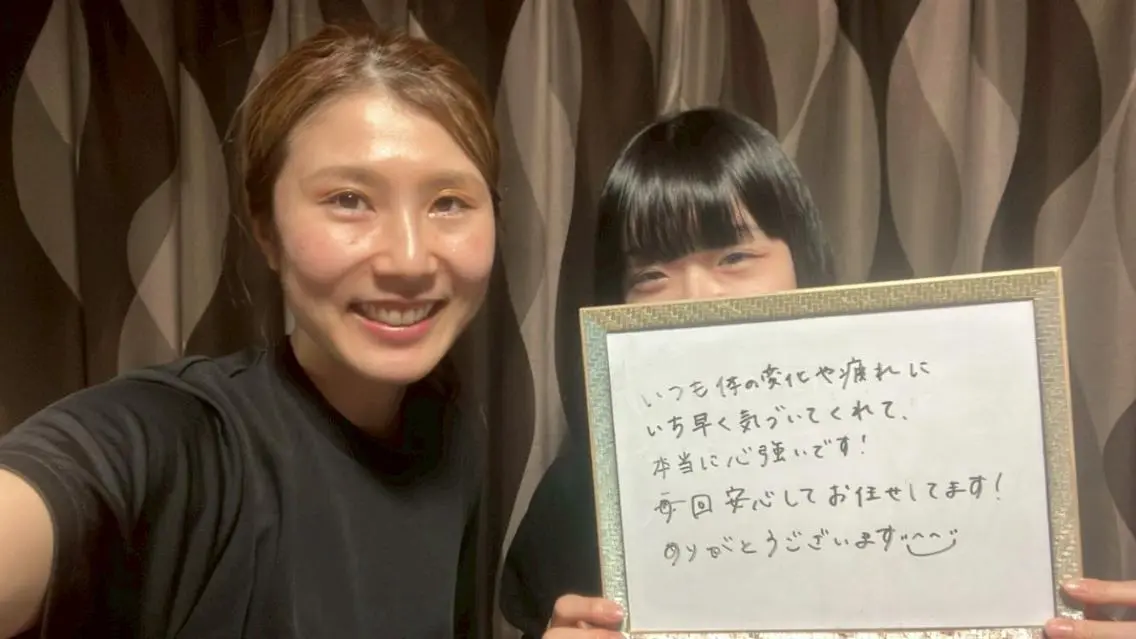 いつも体の変化や疲れに
いち早く気づいてくれて、
本当に心強いです!
毎回安心してお任せしてます!
ありがとうございます